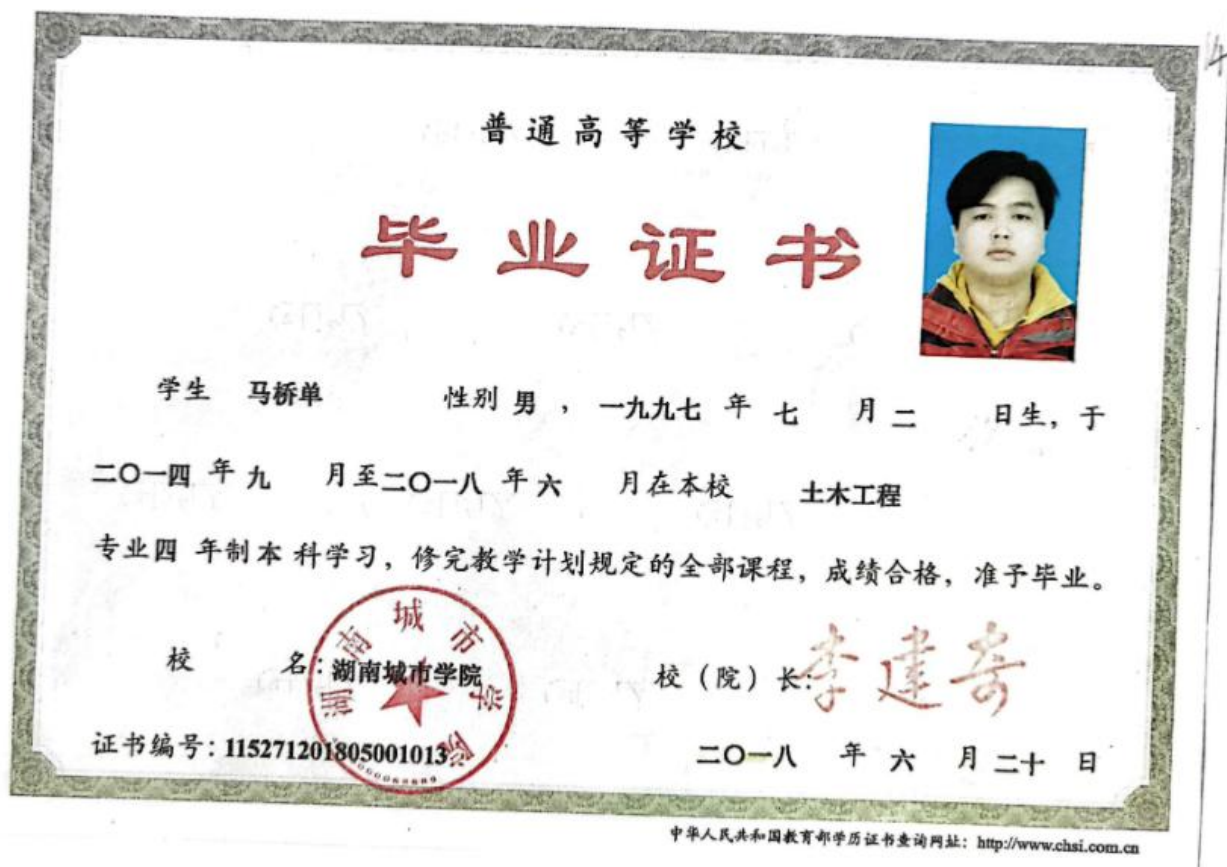 14
普通高等学校
毕业证书
学生 马桥单 性别 男 , 一九九七 年 七 月 二 日生, 于
二〇一四 年 九 月至 二〇一八 年 六 月在本校 土木工程
专业 四 年制 本 科学习, 修完教学计划规定的全部课程, 成绩合格, 准予毕业。
校 名: 湖南城市学院
湖南城市学院
校（院）长: 李建奇
证书编号: 115271201805001013
二〇一八 年 六 月 二十 日
中华人民共和国教育部学历证书查询网址: http://www.chsi.com.cn